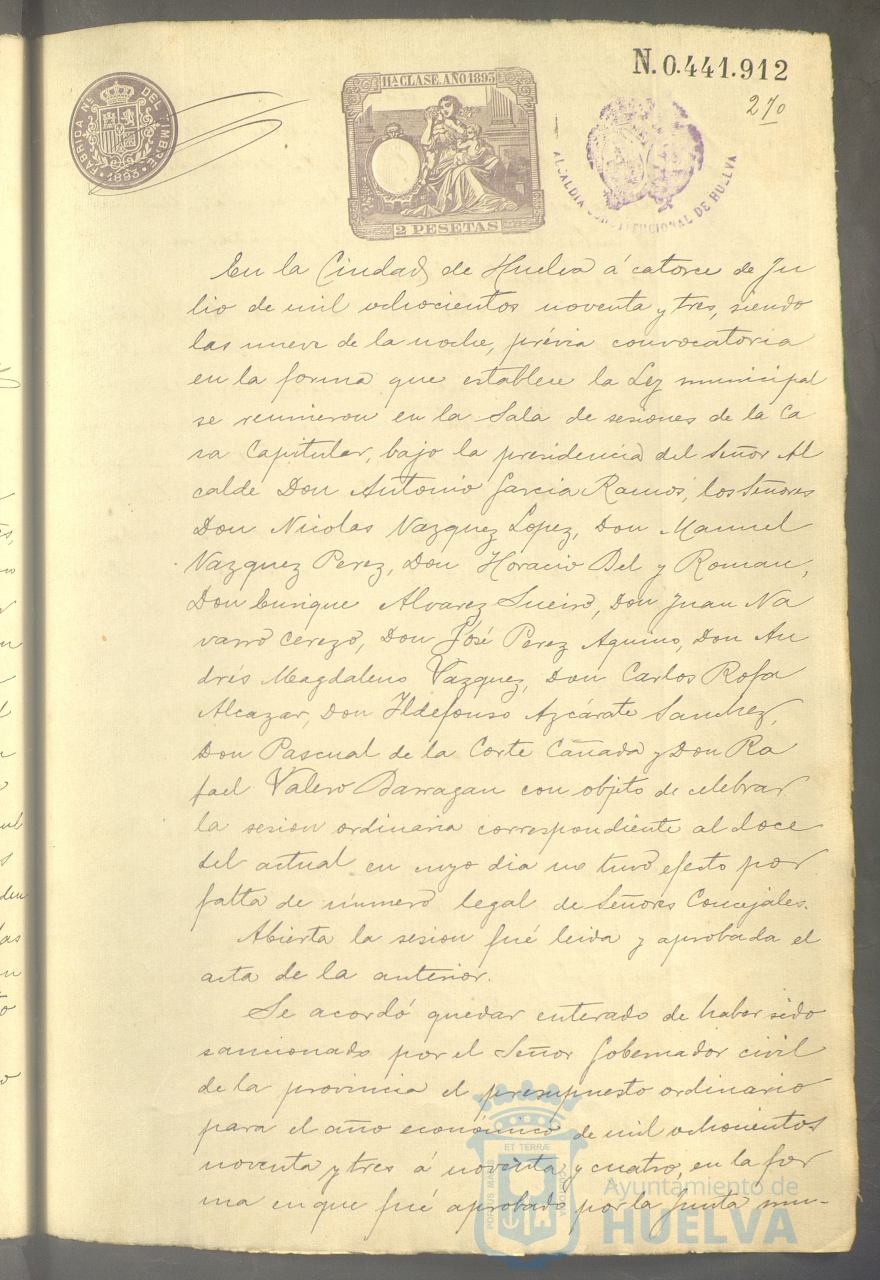 N. 0.441.912
270
FÁBRICA Nª DEL TIMBRE
1893
11ª CLASE. AÑO 1893
2 PESETAS
ALCALDIA CONSTITUCIONAL DE HUELVA
En la Ciudad de Huelva á catorce de Ju
lio de mil ochocientos noventa y tres, siendo
las nueve de la noche, prévia convocatoria
en la forma que establece la Ley municipal
se reunieron en la Sala de sesiones de la Ca
sa Capitular, bajo la presidencia del Señor Al
calde Don Antonio Garcia Ramos, los Señores
Don Nicolas Vazquez Lopez, Don Manuel
Vazquez Perez, Don Horacio Bel y Roman,
Don Enrique Alvarez Sueiro, Don Juan Na
varro Cerezo, Don José Perez Aquino, Don An
drés Magdaleno Vazquez, Don Carlos Rofa
Alcazar, Don Ildefonso Azcárate Sanchez,
Don Pascual de la Corte Cañada y Don Ra
fael Valero Barragan con objeto de celebrar
la sesion ordinaria correspondiente al doce
del actual en cuyo dia no tuvo efecto por
falta de número legal de Señores Concejales.
Abierta la sesion fué leida y aprobada el
acta de la anterior.
Se acordó quedar enterado de haber sido
sancionado por el Señor Gobernador civil
de la provincia el presupuesto ordinario
para el año económico de mil ochocientos
noventa y tres á noventa y cuatro, en la for
ma en que fué aprobado por la Junta mu-
ET TERRÆ
PORTUS MARIS
CUSTODIA
Ayuntamiento de
HUELVA